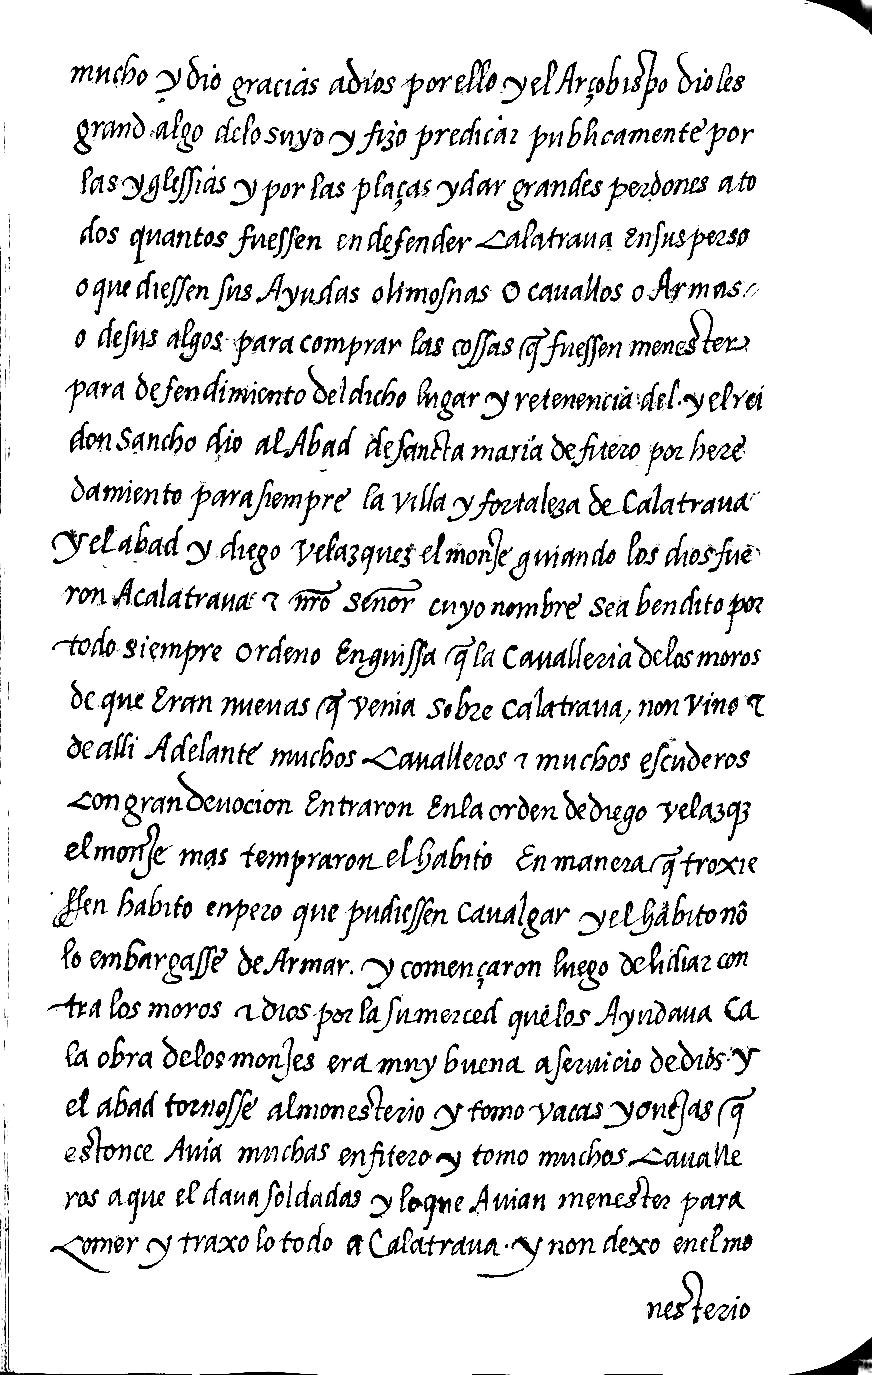 mucho y dio gracias adios por ello y el Arçobispo dioles
grand algo delo suyo y fizo predicar publicamente por
las yglessias y por las plaças y dar grandes perdones a to
dos quantos fuessen en defender Calatrava En sus perso
o que diessen sus Ayudas o limosnas O cavallos o Armas
o de sus algos para comprar las cossas q̃ fuessen menester
para defendimiento del dicho lugar y retenencia del. y el rei
don Sancho dio al Abad de sancta maría de fitero por here
damiento para siempre la villa y fortaleza de Calatraua
y el abad y diego Velazquez el monje guiando los dios fue
ron A calatraua τ nr̃o Señor cuyo nombre sea bendito por
todo siempre ordeno En guissa q̃ la Cauallería de los moros
de que Eran nueuas q̃ venia sobre Calatraua, non vino τ
de alli Adelante muchos Caualleros τ muchos escuderos
Con gran deuocion Entraron En la orden de diego velazq̃z
el monje mas tempraron el habito En manera q̃ troxie
ssen habito enpero que pudiessen Caualgar y el hábito nõ
lo embargasse de Armar. y començaron luego de lidiar con
tra los moros τ dios por la su merced que los Ayudaua Ca
la obra de los monjes era muy buena a seruicio de dios y
el abad tornosse al monesterio y tomo vacas y ouejas q̃
estonce Auía muchas en fitero y tomo muchos Cavalle
ros a que el daua soldadas y lo que Auian menester para
Comer y traxo lo todo a Calatraua. y non dexo en el mo
nesterio